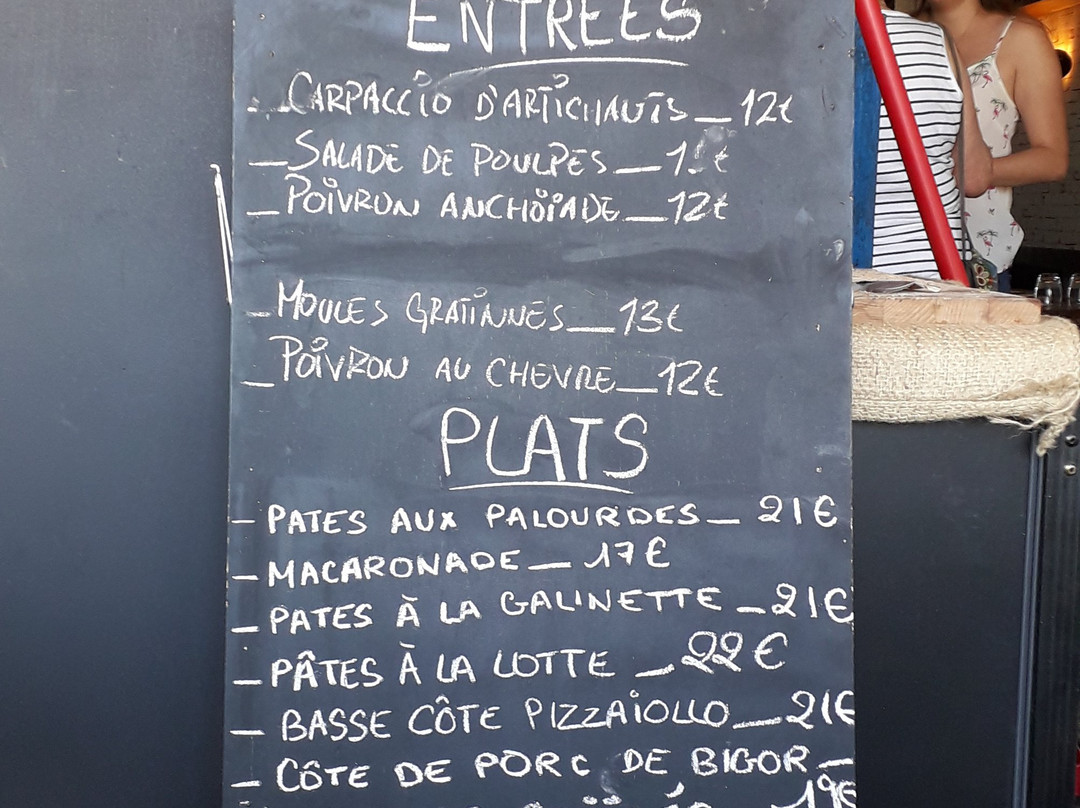 ENTRÉES
_ CARPACCIO D'ARTICHAUTS _ 12€
_ SALADE DE POULPES _
_ POIVRON ANCHOÏADE _ 12€
_ MOULES GRATINNES _ 13€
_ POIVRON AU CHEVRE _ 12€
PLATS
- PATES AUX PALOURDES _ 21€
- MACARONADE _ 17€
- PATES À LA GALINETTE _ 21€
- PÂTES À LA LOTTE _ 22€
- BASSE CÔTE PIZZAIOLLO _ 21€
- CÔTE DE PORC DE BIGOR _
19€